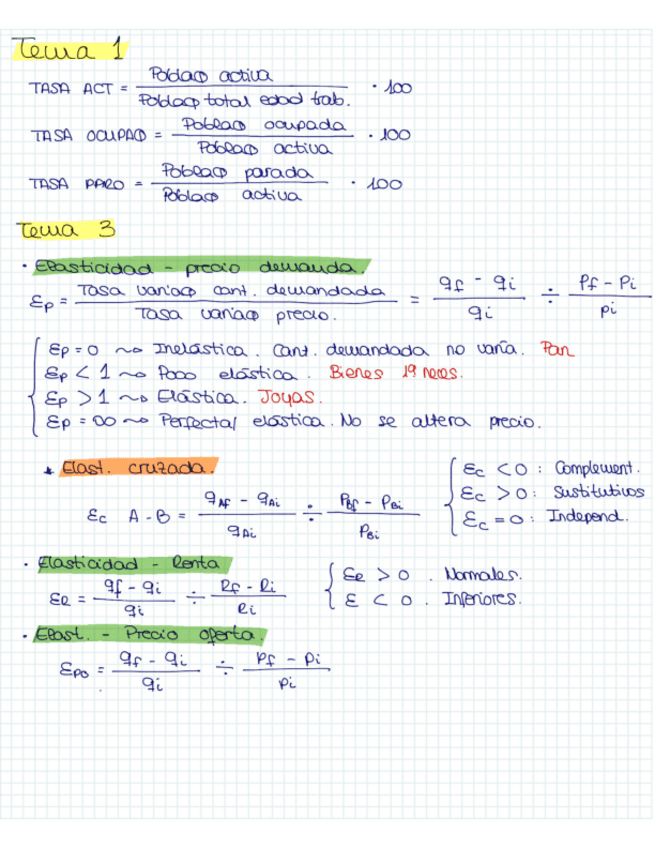 Tema 1
TASA ACT = Poblaç activa / Poblaç total edad trab. · 100
TASA OCUPAÇ = Poblaç ocupada / Poblaç activa · 100
TASA PARO = Poblaç parada / Poblaç activa · 100
Tema 3
· Elasticidad - precio demanda.
Ep = Tasa variaç cant. demandada / Tasa variaç precio. = qf - qi / qi ÷ Pf - Pi / Pi
Ep = 0 ~> Inelástica. Cant. demandada no varía. Pan
Ep < 1 ~> Poco elástica. Bienes 1ª neces.
Ep > 1 ~> Elástica. Joyas.
Ep = ∞ ~> Perfecta/ elástica. No se altera precio.
* Elast. cruzada.
Ec A-B = qAf - qAi / qAi ÷ PBf - PBi / PBi
Ec < 0 : Complement.
Ec > 0 : Sustitutivos
Ec = 0 : Independ.
· Elasticidad - Renta
ER = qf - qi / qi ÷ Rf - Ri / Ri
ER > 0 . Normales.
E < 0 . Inferiores.
· Elast. - Precio oferta.
Epo = qf - qi / qi ÷ Pf - Pi / Pi